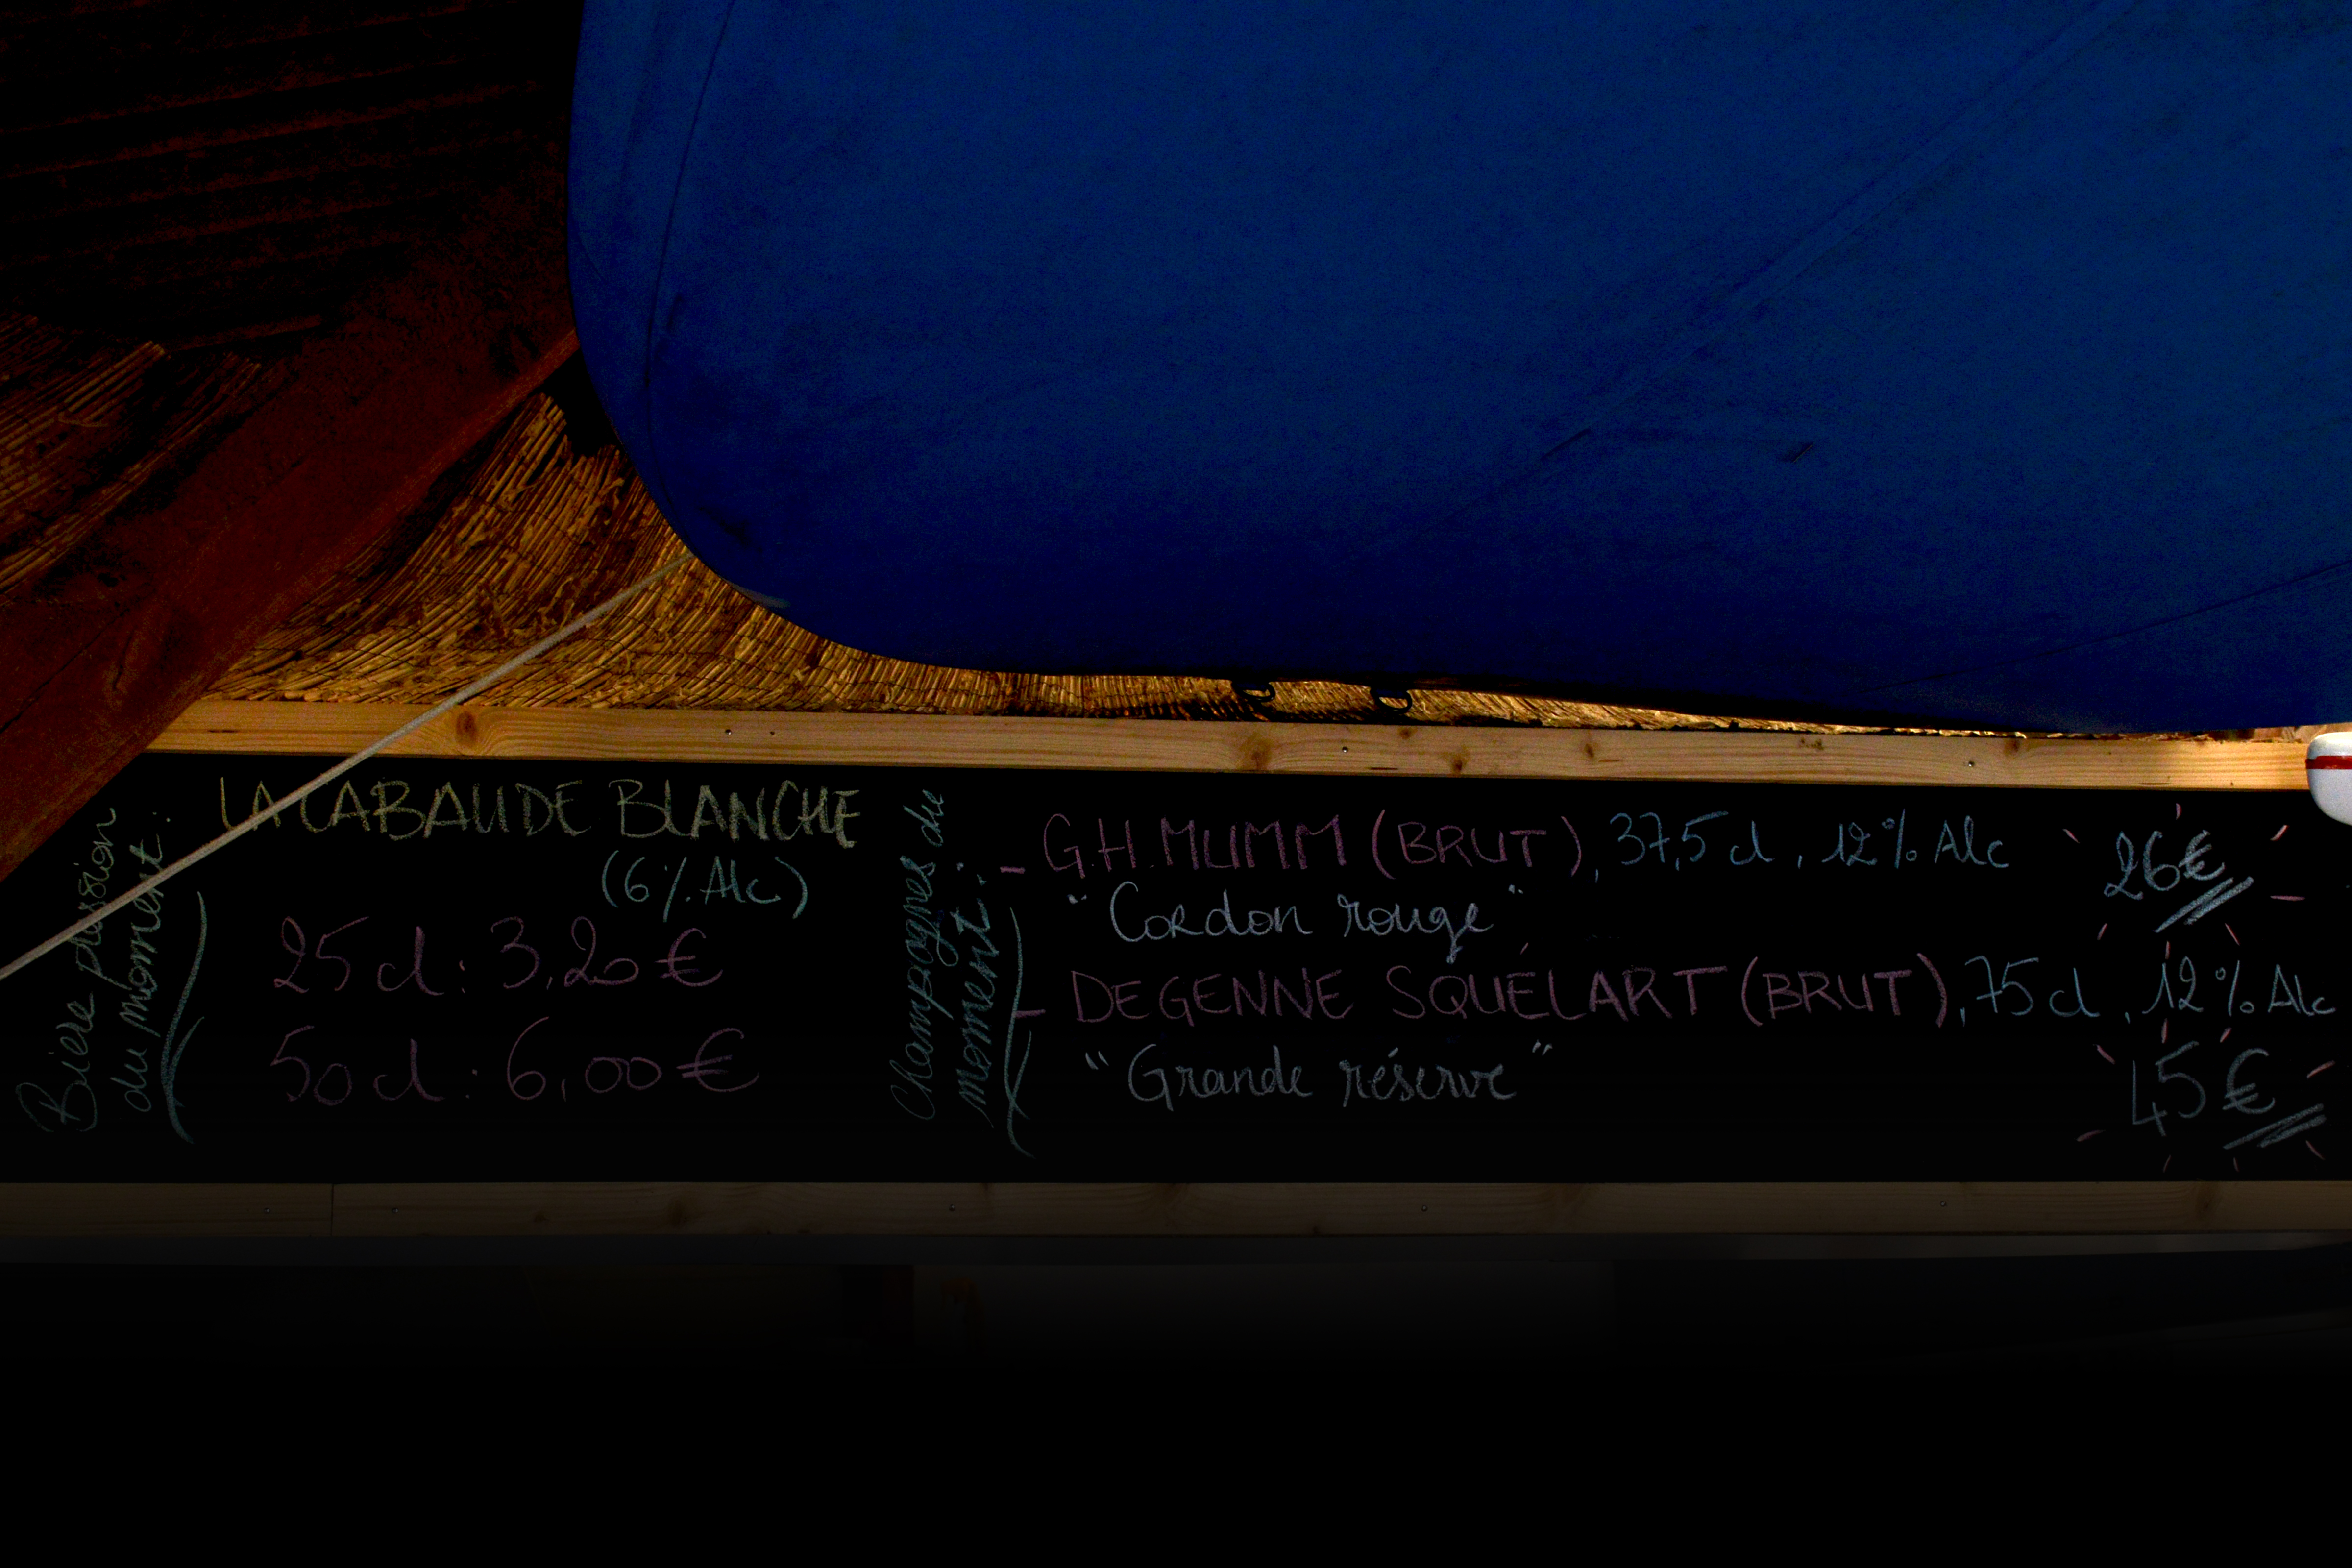 Bière passion
du moment :
LA CABAUDE BLANCHE
(6% Alc)
25 cl : 3,20 €
50 cl : 6,00 €
Champagnes du
moment :
- G.H. MUMM (BRUT), 37,5 cl, 12% Alc
"Cordon rouge"
26€
- DEGENNE SQUÉLART (BRUT), 75 cl, 12% Alc
"Grande réserve"
45€